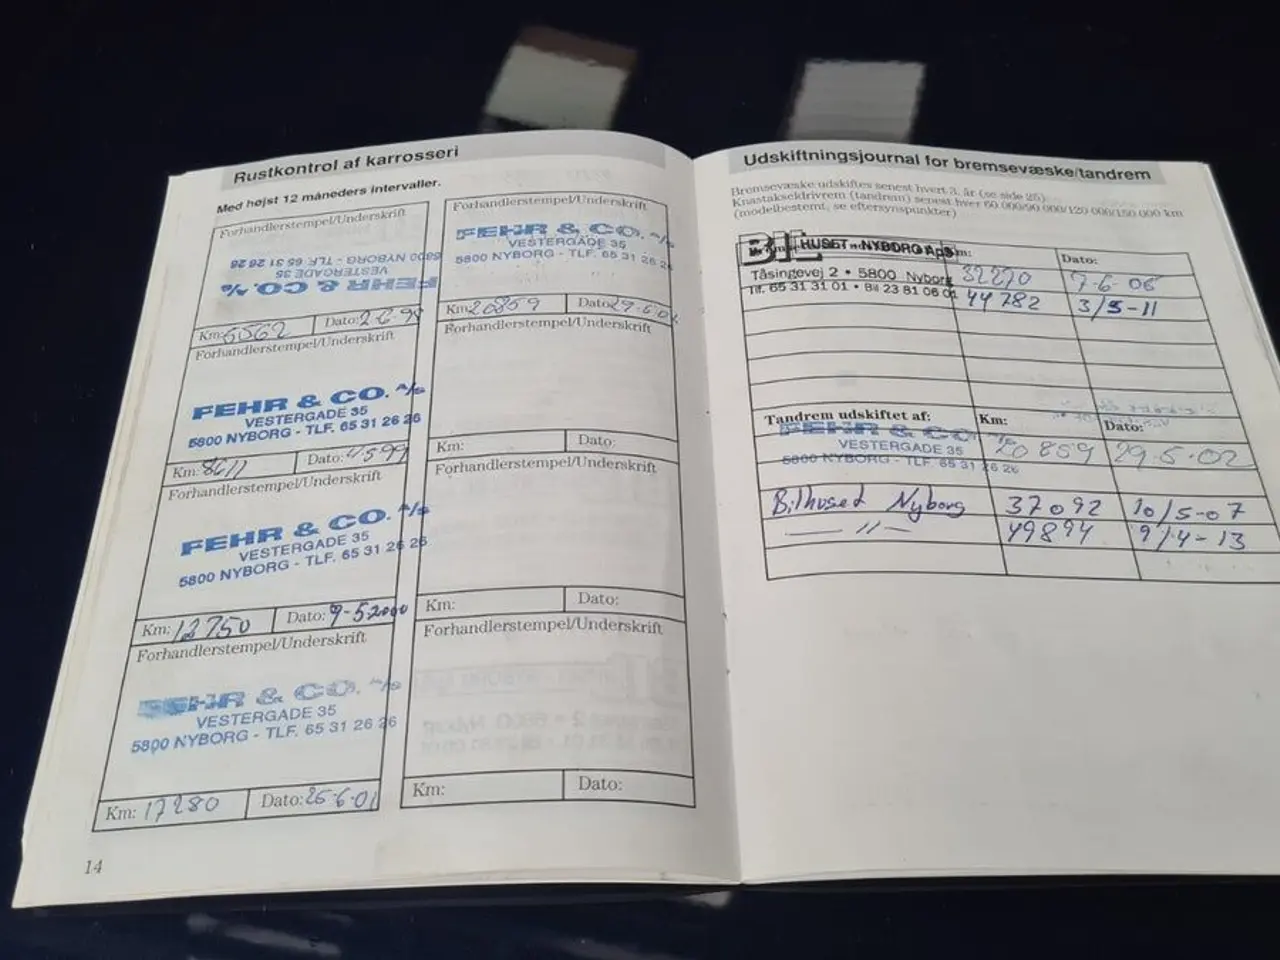 Rustkontrol af karrosseri
Med højst 12 måneders intervaller.
Forhandlerstempel/Underskrift
FEHR & CO. A/S
VESTERGADE 35
5800 NYBORG - TLF. 65 31 26 26
Km: 6562 Dato: 2-6-98
Forhandlerstempel/Underskrift
FEHR & CO. A/S
VESTERGADE 35
5800 NYBORG - TLF. 65 31 26 26
Km: 8611 Dato:
Forhandlerstempel/Underskrift
FEHR & CO. A/S
VESTERGADE 35
5800 NYBORG - TLF. 65 31 26 26
Km: 12750 Dato: 9-5-2000
Forhandlerstempel/Underskrift
FEHR & CO. A/S
VESTERGADE 35
5800 NYBORG - TLF. 65 31 26 26
Km: 17280 Dato: 25-6-01
14
Forhandlerstempel/Underskrift
FEHR & CO. A/S
VESTERGADE 35
5800 NYBORG - TLF. 65 31 26 26
Km: 20859 Dato: 29-5-02
Forhandlerstempel/Underskrift
Km: Dato:
Forhandlerstempel/Underskrift
Km: Dato:
Forhandlerstempel/Underskrift
Km: Dato:
Udskiftningsjournal for bremsevæske/tandrem
Bremsevæske udskiftes senest hvert 3. år (se side 25)
Knastakseldrivrem (tandrem) senest hver 60 000/90 000/120 000/150 000 km
(modelbestemt, se eftersynspunkter)
BILHUSET NYBORG ApS Km: Dato:
Tåsingevej 2 • 5800 Nyborg 32270 7-6-06
Tlf. 65 31 31 01 • Bil 23 81 06 01 44782 3/5-11
Tandrem udskiftet af: Km: Dato:
FEHR & CO. A/S 20859 29-5-02
VESTERGADE 35
5800 NYBORG - TLF. 65 31 26 26
Bilhuset Nyborg 37092 10/5-07
— 〃 — 49894 9/4-13